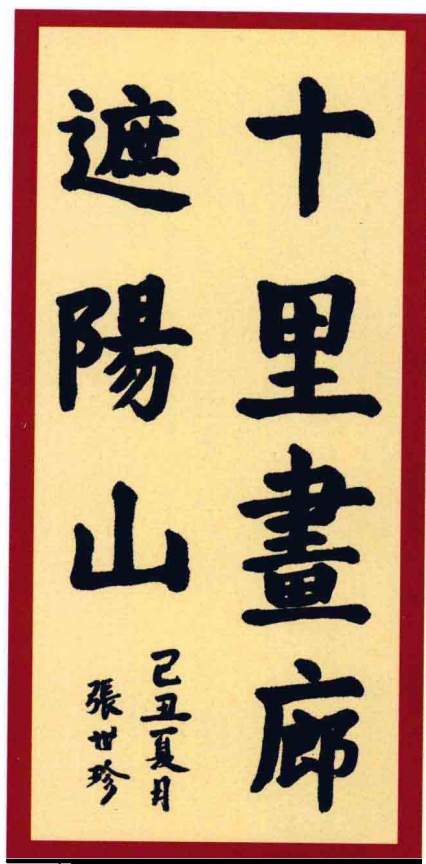 十里畫廊
遮陽山
己丑夏月
張世珍